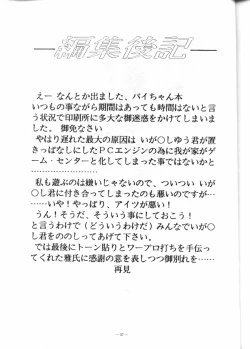 編集後記
えー なんとか出ました、バイちゃん本
いつもの事ながら期間はあっても時間はないと言
う状況で印刷所に多大な御迷惑をかけてしまいま
した。 御免なさい
やはり遅れた最大の原因は いが○しゆう君が置
きっぱなしにしたPCエンジンの為に我が家がゲ
ーム・センターと化してしまった事ではないかと
……………………
私も遊ぶのは嫌いじゃないので、ついつい いが
○し君に付き合ってしまったのも悪いのですが…
……いや！やっぱり、アイツが悪い！
うん！そうだ、そういう事にしておこう！
と言うわけで（どういうわけだ）みんなでいが○
し君をののしってあげて下さい。
では最後にトーン貼りとワープロ打ちを手伝っ
てくれた雅氏に感謝の意を表しつつ御別れを……
再見